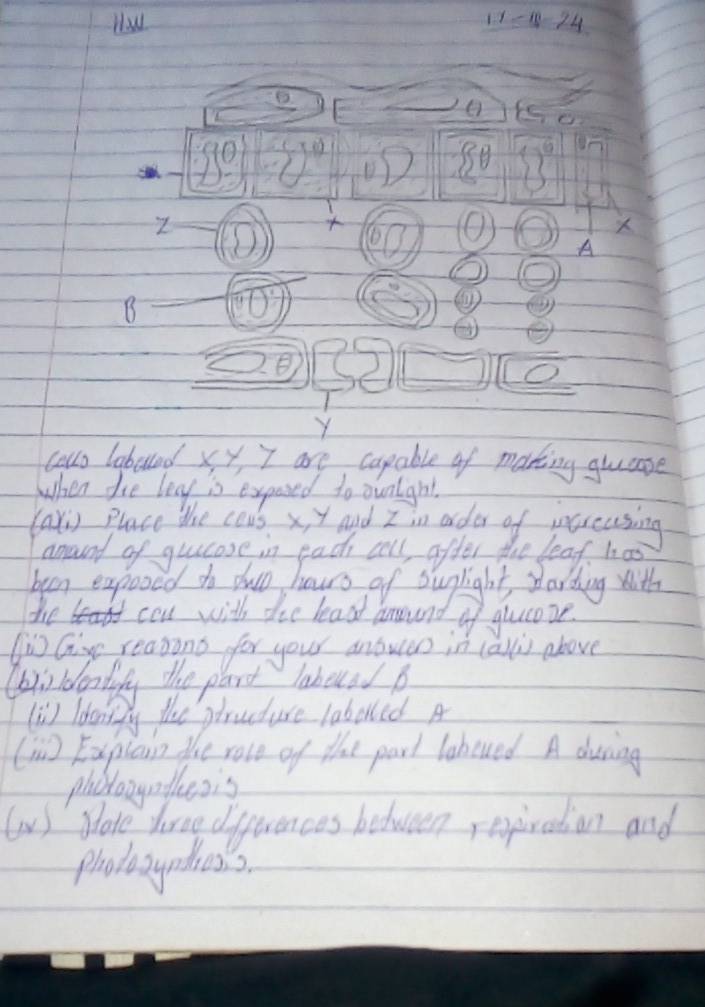 HW
Z
X
X
A
B
Y
Cells labelled X, Y, Z are capable of making glucose
when the leaf is exposed to sunlight.
(a)(i) Place the cells X, Y and Z in order of increasing
amount of glucose in each cell, after the leaf has
been exposed to two hours of sunlight, starting with
the cell with the least amount of glucose.
(ii) Give reasons for your answers in (a)(i) above
(b)(i) Identify the part labelled B
(ii) Identify the structure labelled A
(iii) Explain the role of the part labelled A during
photosynthesis
(iv) State three differences between respiration and
photosynthesis.